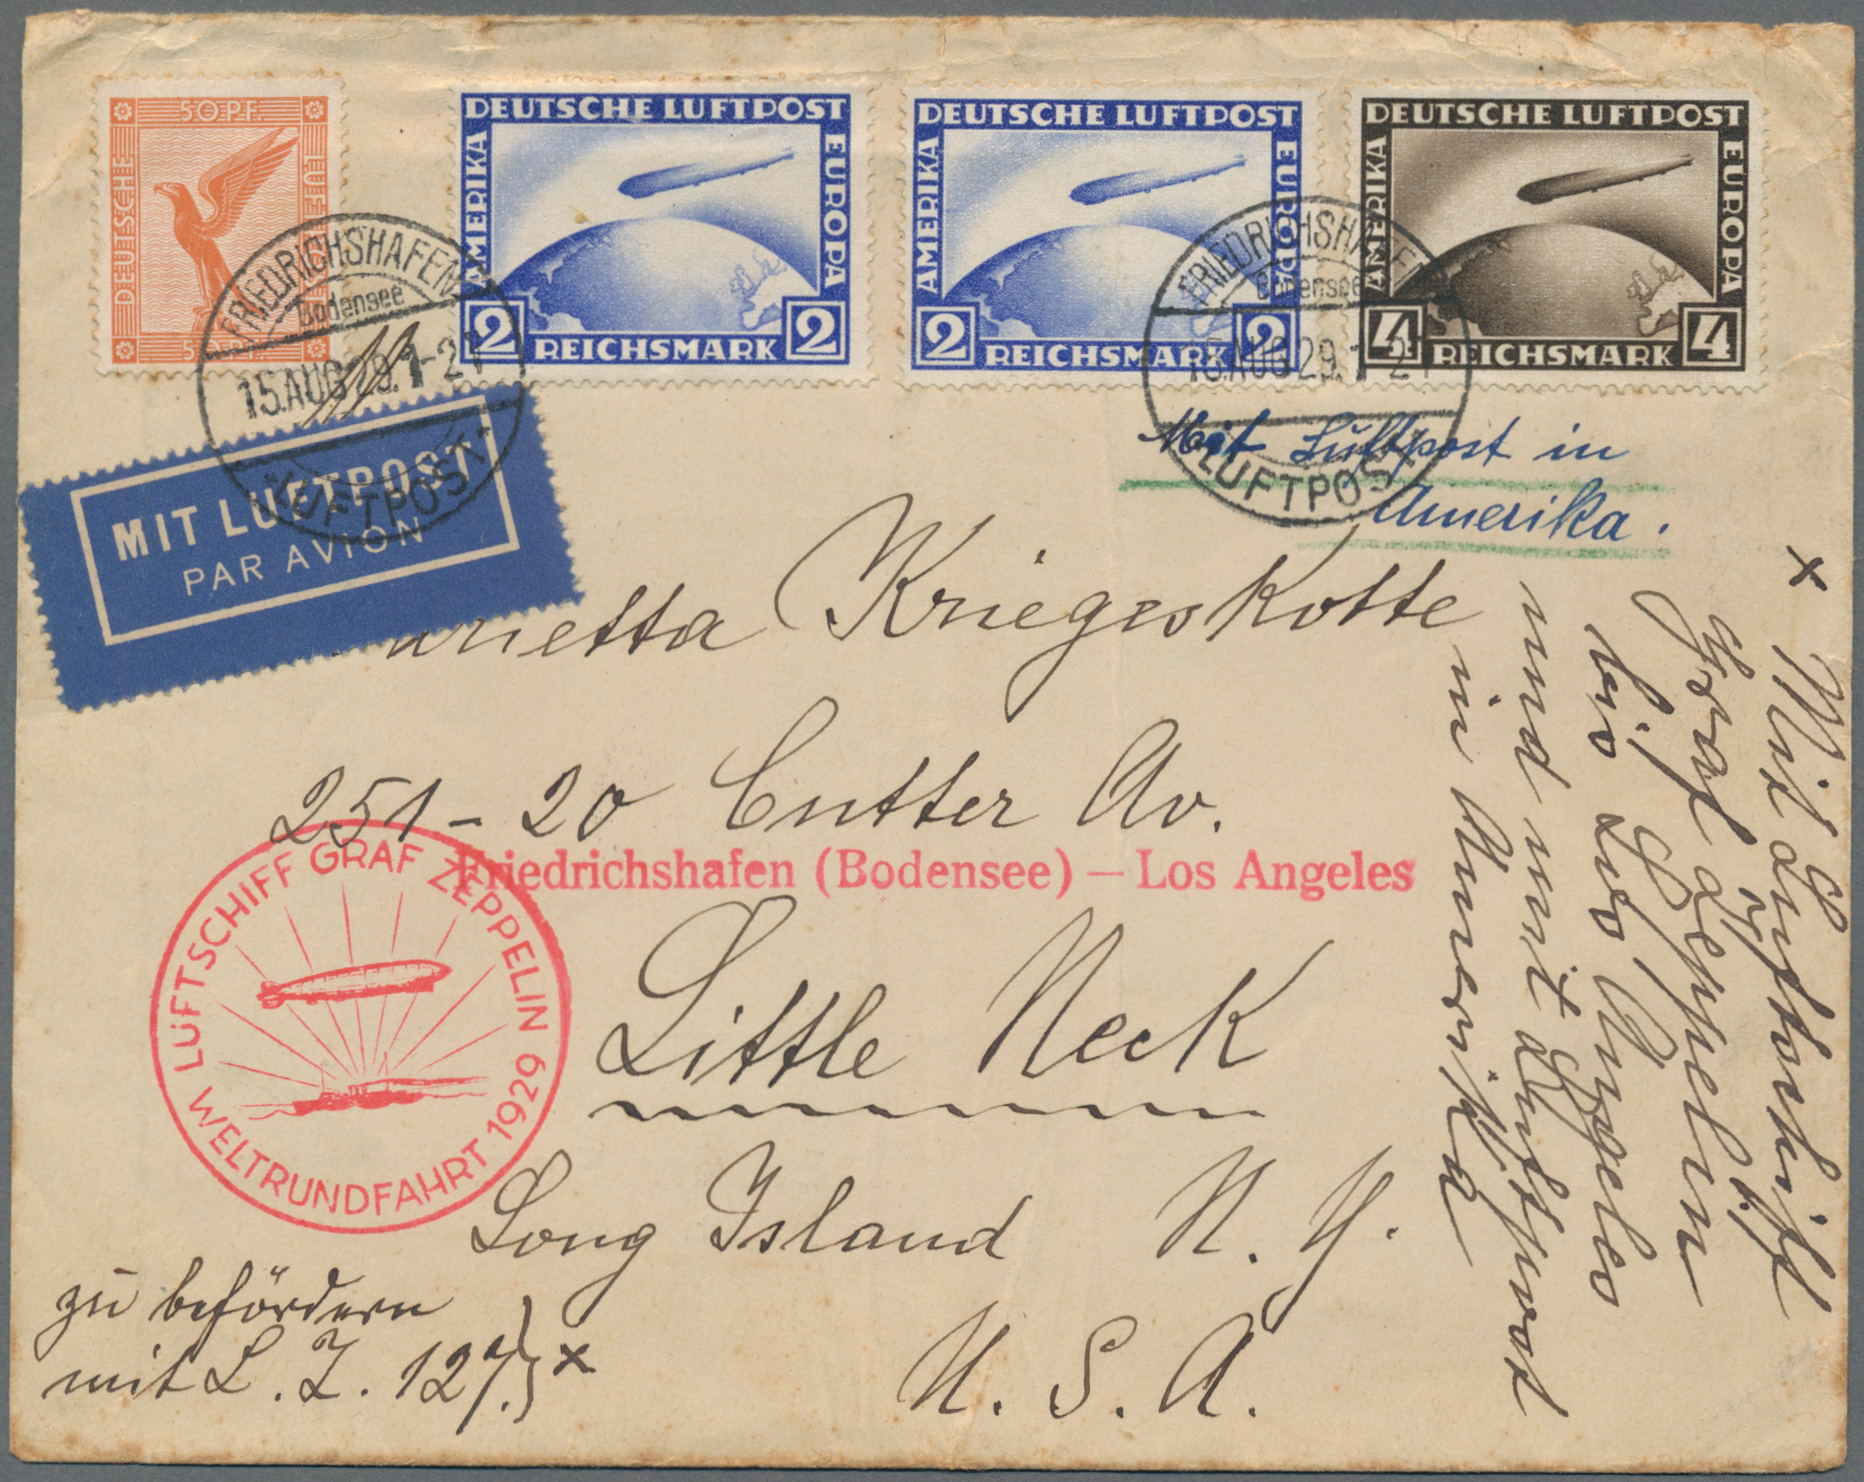 50 PF.
DEUTSCHE
50 PF.
DEUTSCHE LUFTPOST
AMERIKA
EUROPA
2
2
REICHSMARK
DEUTSCHE LUFTPOST
AMERIKA
EUROPA
2
2
REICHSMARK
DEUTSCHE LUFTPOST
AMERIKA
EUROPA
4
4
REICHSMARK
FRIEDRICHSHAFEN
Bodensee
15.AUG.29.1-2
"LUFTPOST"
FRIEDRICHSHAFEN
Bodensee
15.AUG.29.1-2
"LUFTPOST"
MIT LUFTPOST
PAR AVION
Mit Luftpost in
Amerika.
Kriegeskotte
251-20 Cutter Av.
Friedrichshafen (Bodensee) — Los Angeles
Little Neck
Long Island N. Y.
U. S. A.
LUFTSCHIFF GRAF ZEPPELIN
WELTRUNDFAHRT 1929
zu befördern
mit L. Z. 127.} x
x Mit Luftschiff
Graf Zeppelin
bis Los Angeles
und mit Luftpost
in Amerika